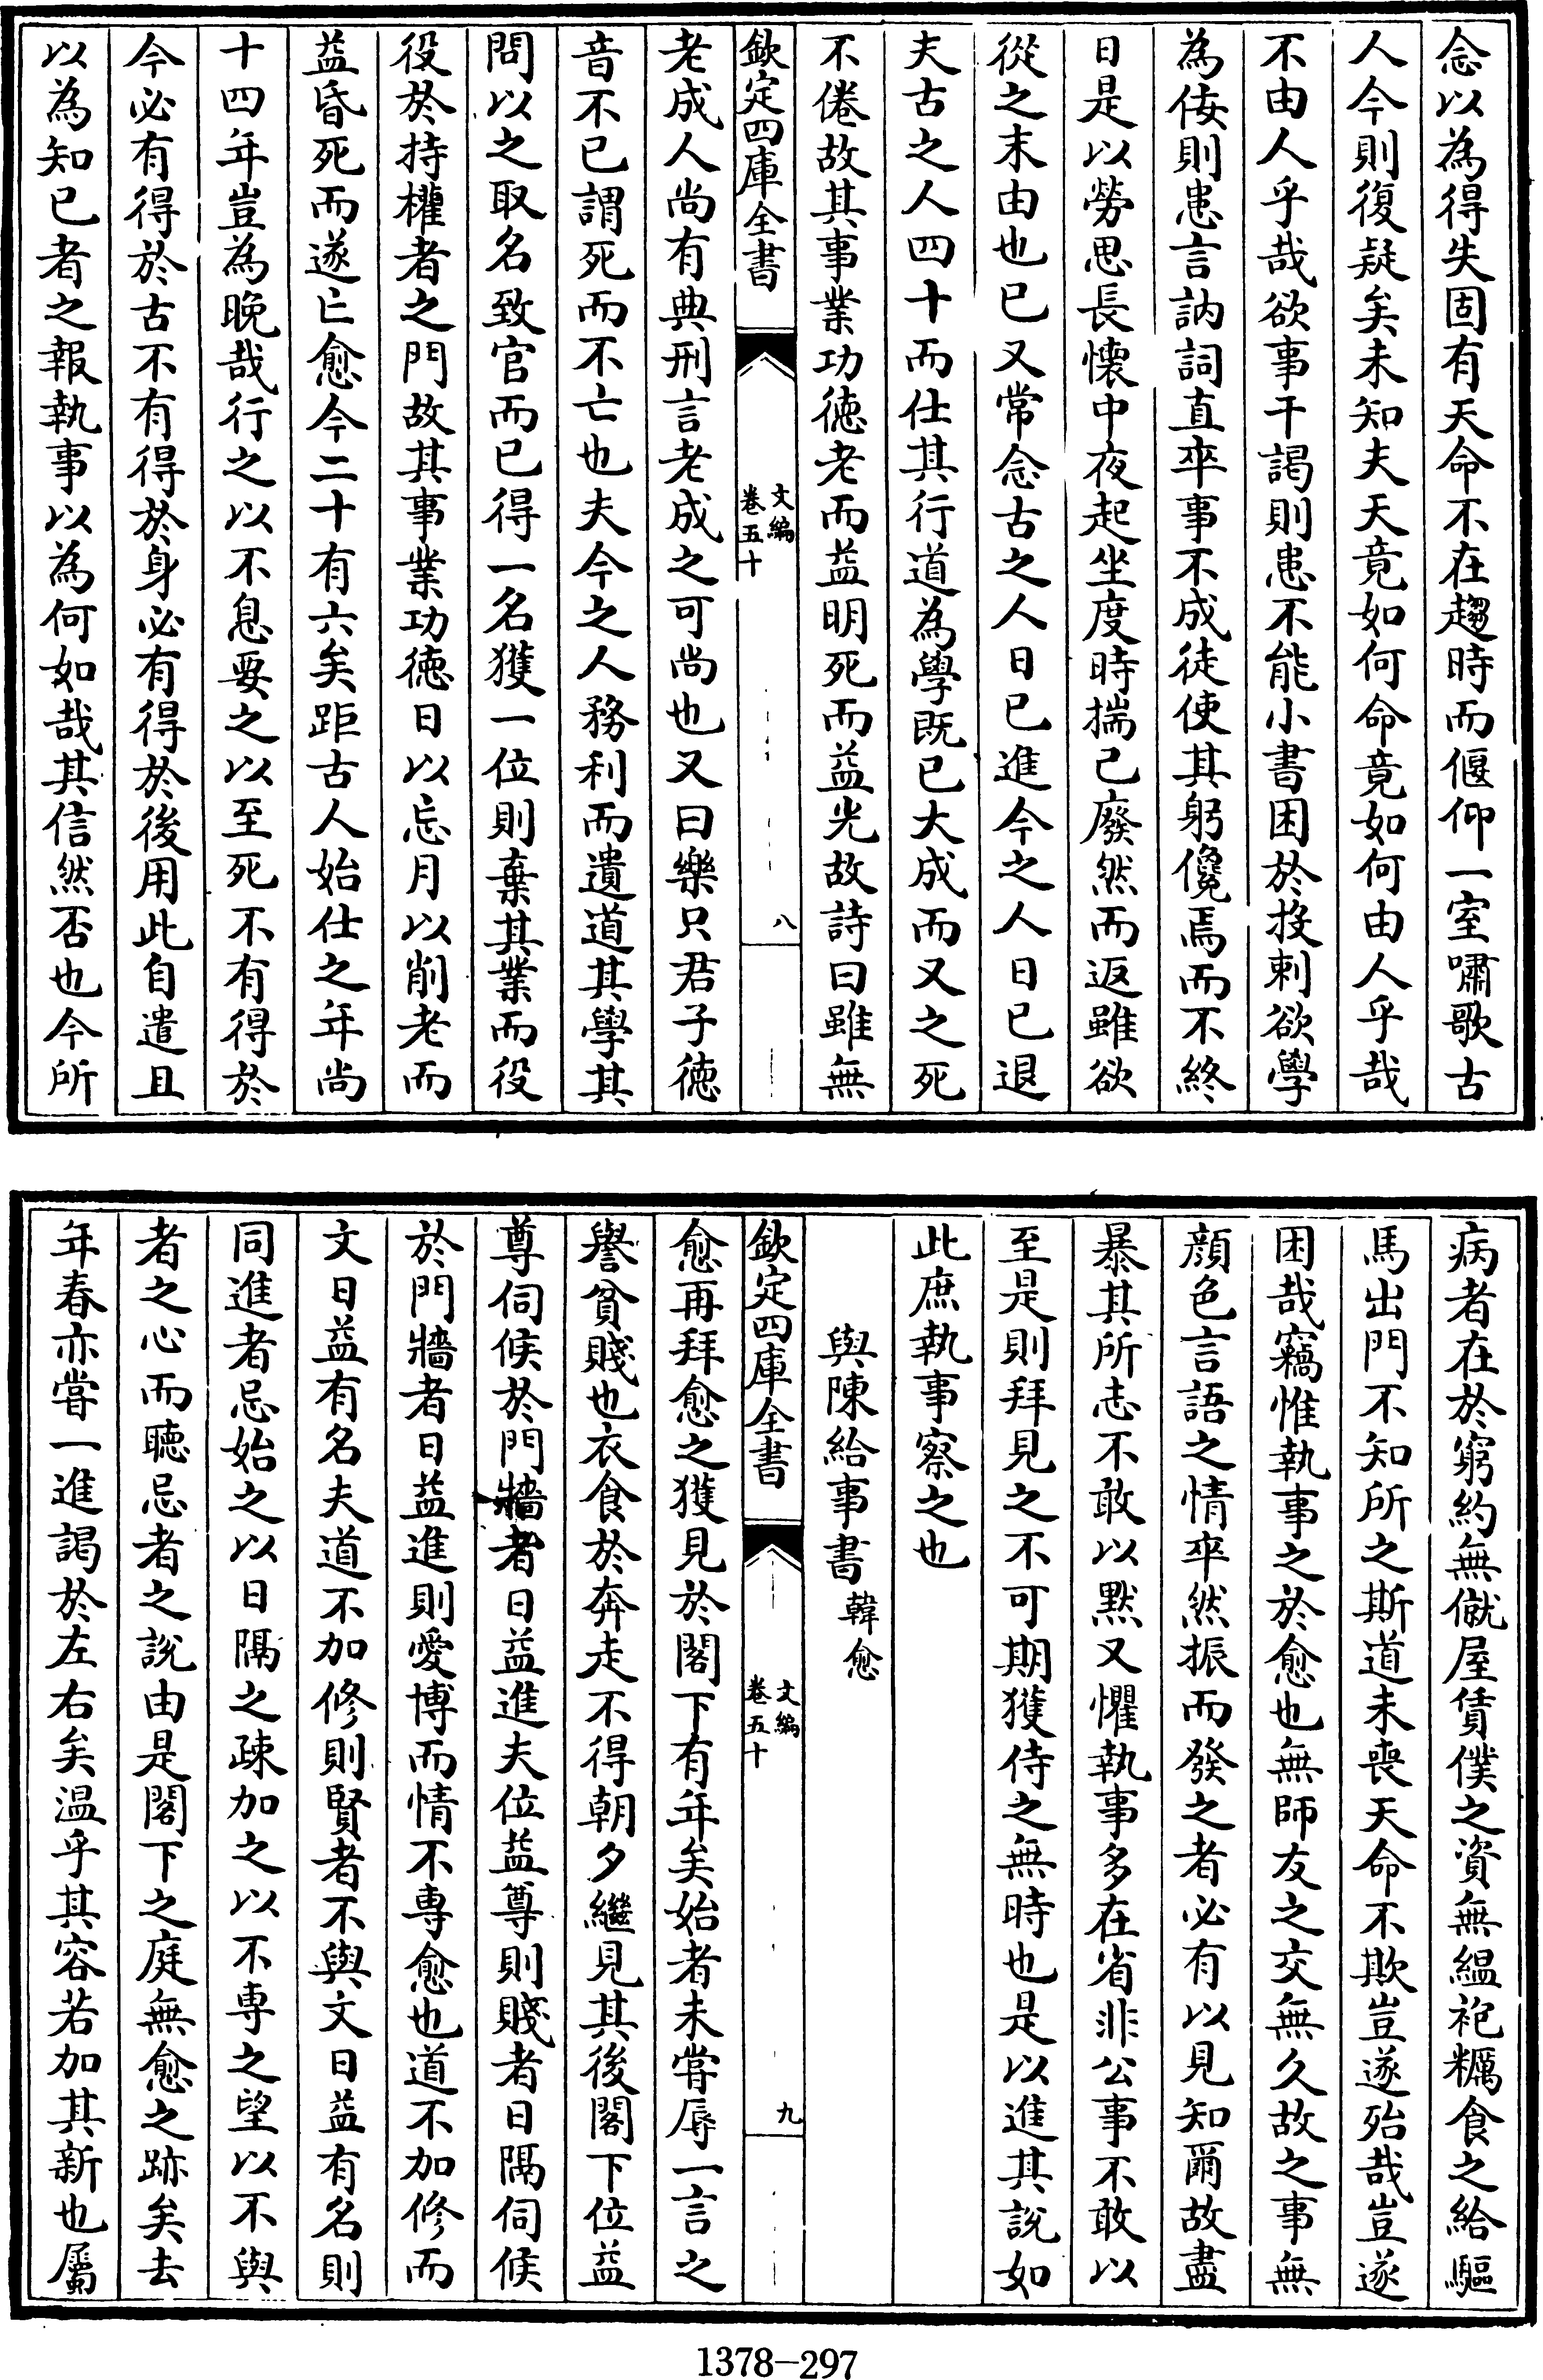 念以為得失固有天命不在趨時而偃仰一室嘯歌古
人今則復疑矣未知夫天竟如何命竟如何由人乎哉
不由人乎哉欲事干謁則患不能小書困於投刺欲學
為佞則患言訥詞直卒事不成徒使其躬儳焉而不終
日是以勞思長懐中夜起坐度時揣己廢然而返雖欲
從之末由也已又常念古之人日已進今之人日已退
夫古之人四十而仕其行道為學既已大成而又之死
不倦故其事業功徳老而益明死而益光故詩曰雖無
欽定四庫全書
文編
卷五十
八
老成人尚有典刑言老成之可尚也又曰樂只君子徳
音不已謂死而不亡也夫今之人務利而遺道其學其
問以之取名致官而已得一名獲一位則棄其業而役
役於持權者之門故其事業功徳日以忘月以削老而
益昏死而遂亡愈今二十有六矣距古人始仕之年尚
十四年豈為晚哉行之以不息要之以至死不有得於
今必有得於古不有得於身必有得於後用此自遣且
以為知已者之報執事以為何如哉其信然否也今所
病者在於窮約無僦屋賃僕之資無緼袍糲食之給驅
馬出門不知所之斯道未喪天命不欺豈遂殆哉豈遂
困哉竊惟執事之於愈也無師友之交無久故之事無
顔色言語之情卒然振而發之者必有以見知爾故盡
暴其所志不敢以黙又懼執事多在省非公事不敢以
至是則拜見之不可期獲侍之無時也是以進其說如
此庶執事察之也
與陳給事書韓愈
欽定四庫全書
文編
卷五十
九
愈再拜愈之獲見於閣下有年矣始者未嘗辱一言之
譽貧賤也衣食於奔走不得朝夕繼見其後閣下位益
尊伺候於門牆者日益進夫位益尊則賤者日隔伺候
於門牆者日益進則愛博而情不專愈也道不加修而
文日益有名夫道不加修則賢者不與文日益有名則
同進者忌始之以日隔之疎加之以不専之望以不與
者之心而聴忌者之說由是閣下之庭無愈之跡矣去
年春亦嘗一進謁於左右矣温乎其容若加其新也屬
1378-297